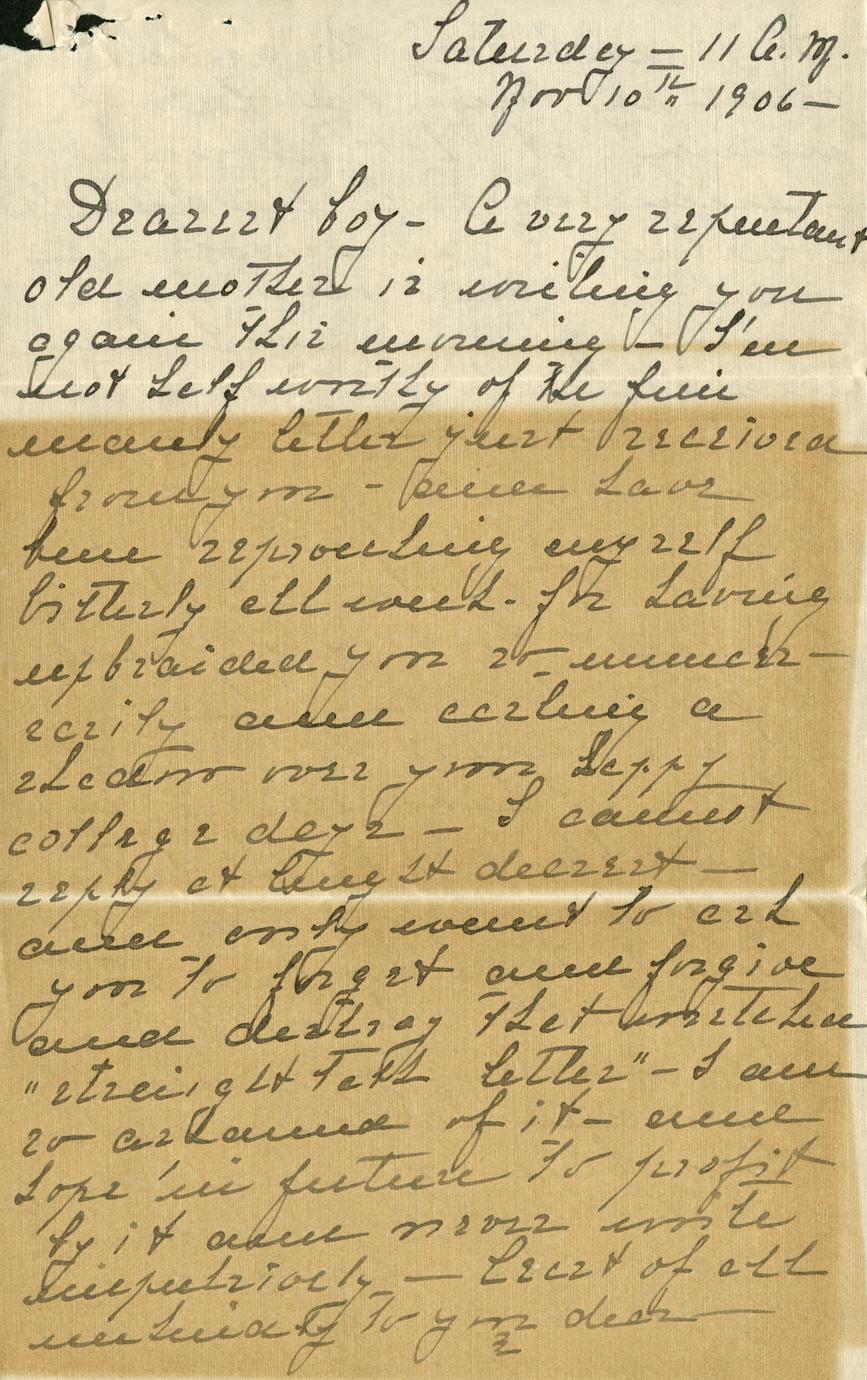 Saturday = 11 A.M.
Nov 10th 1906 -
Dearest boy - A very repentant
old mother is writing you
again this morning - I'm
not half worthy of the fine
manly letter just received
from you - and have
been reproaching myself
bitterly all week - for having
upbraided you so unneces-
sarily and casting a
shadow over your happy
college days - I cannot
reply at length dearest -
and only want to ask
you to forget and forgive
and destroy that wretched
"straight talk letter" - I am
so ashamed of it - and
hope in future to profit
by it and never write
impulsively - least of all
unkindly to you dear -